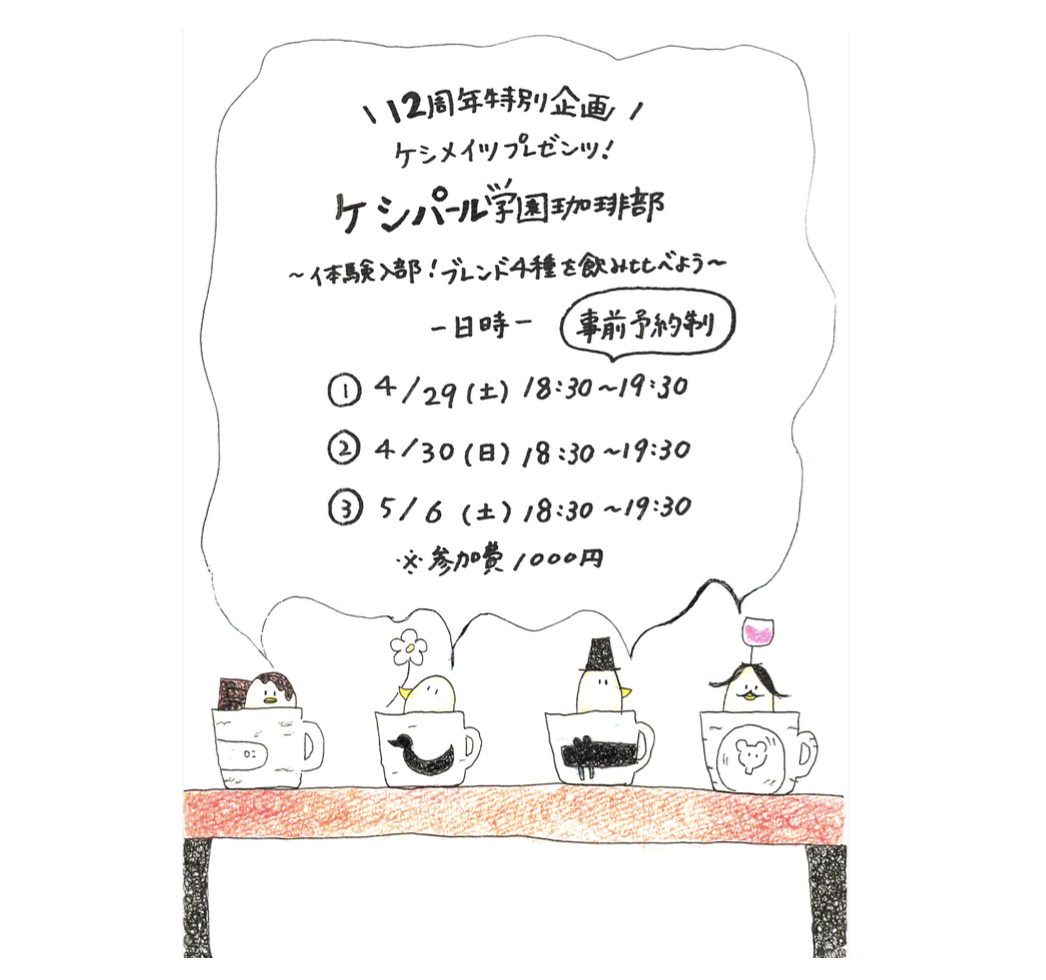 \ 12周年特別企画 /
ケシメイツプレゼンツ!
ケシパール学園珈琲部
~体験入部!ブレンド4種を飲み比べよう~
-日時- 事前予約制
① 4/29(土) 18:30~19:30
② 4/30(日) 18:30~19:30
③ 5/6(土) 18:30~19:30
※参加費1000円